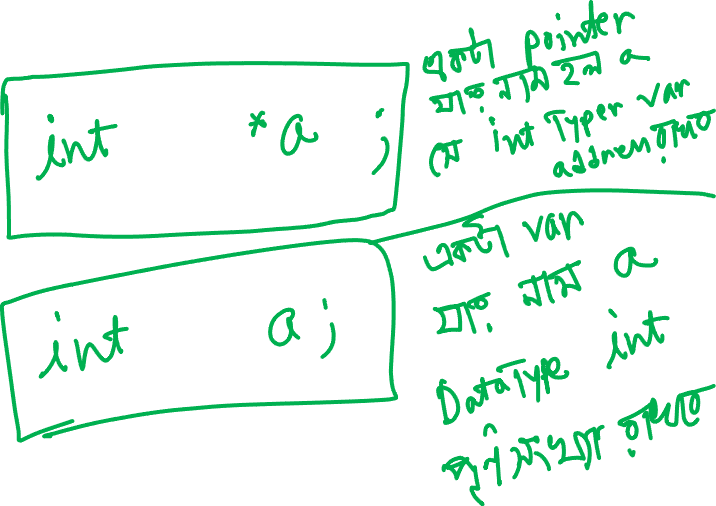 int *a ;
একটা pointer
যার নাম হল a
সে int Typer var
address রাখবে
int a ;
একটা var
যার নাম a
DataType int
পূর্ণসংখ্যা রাখবে